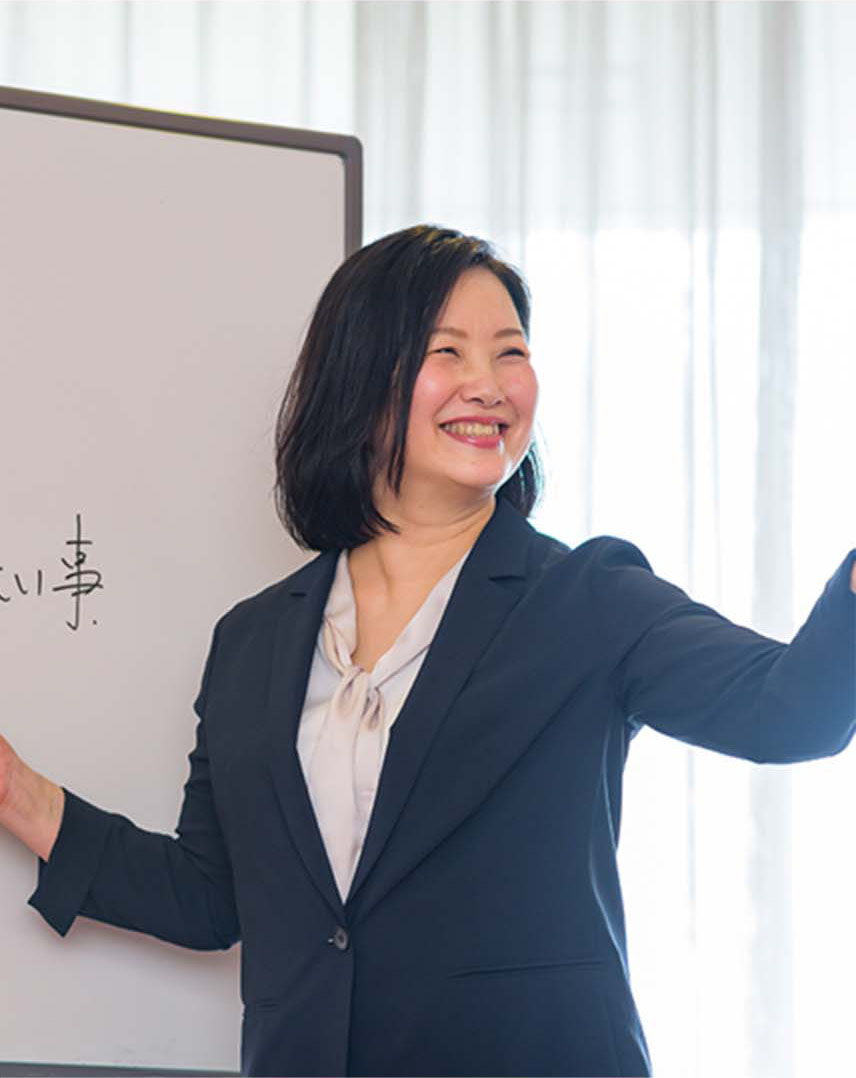 い事.